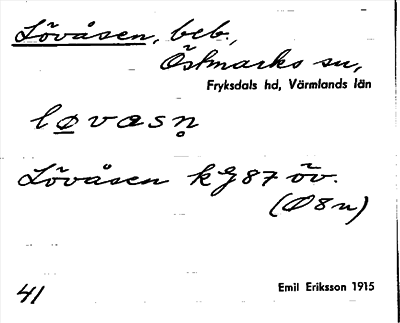 Lövåsen, beb.,
Östmarks sn,
Fryksdals hd, Värmlands län
løvasn̥
Lövåsen kg 87 öv.
(Ø8n)
41
Emil Eriksson 1915